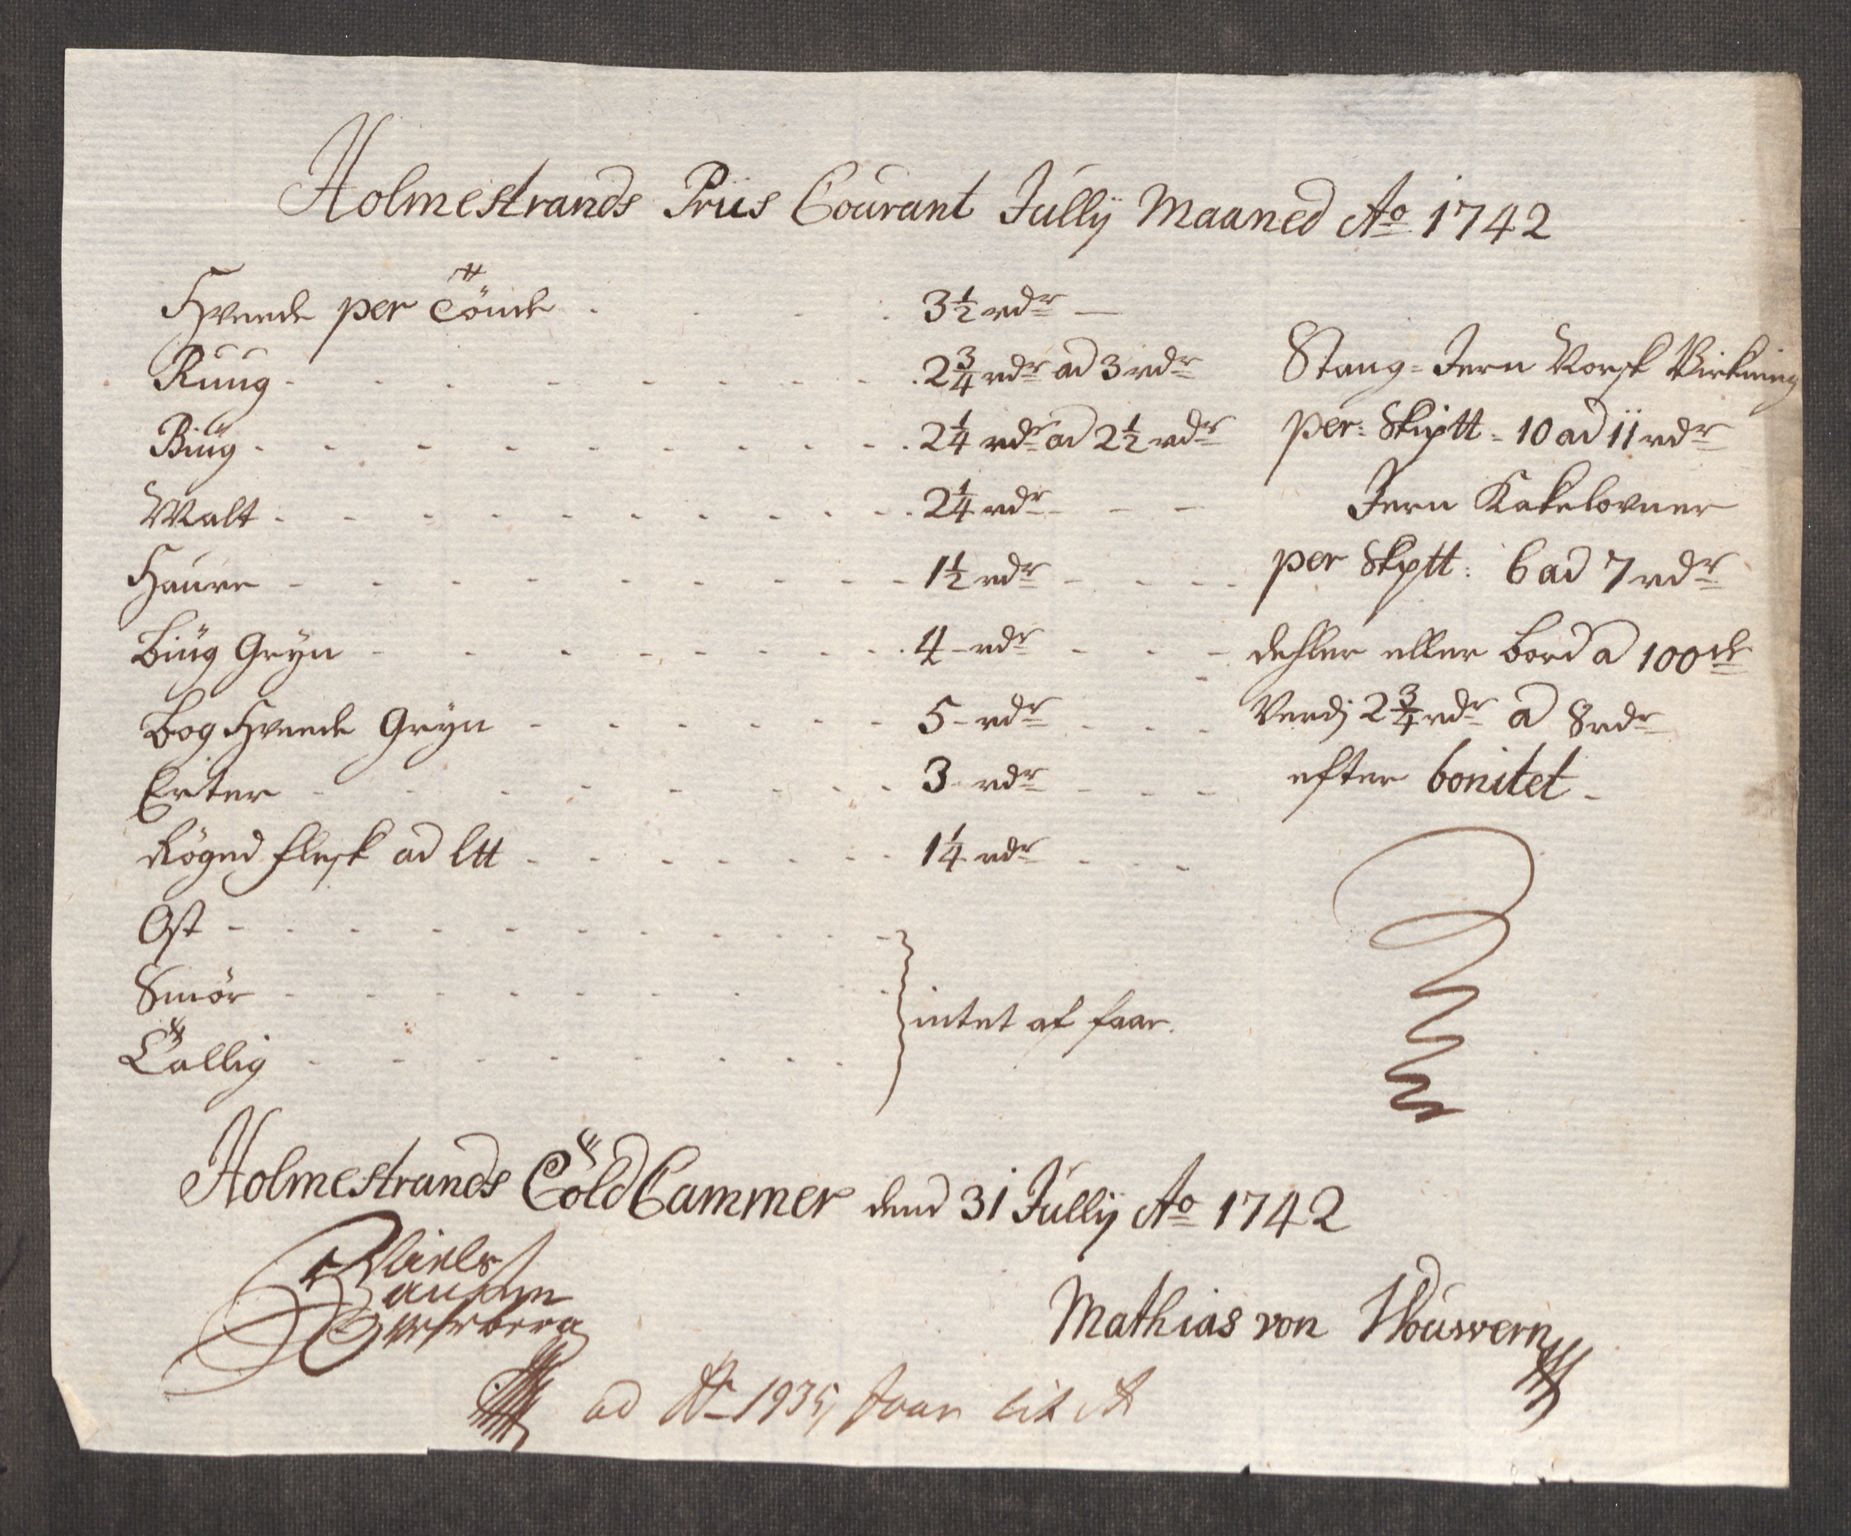 Holmestrands Priis Courant Jullÿ Maaned Ao 1742
Hveede per Tönde . . . . 3½ rdr
Ruug . . . . 2¾ rdr ad 3 rdr
Biug . . . . 2¼ rdr ad 2½ rdr
Malt . . . . 2¼ rdr
Haure . . . . 1½ rdr
Biüg Gryn . . . . 4 rdr
Bog Hveede Gryn . . . . 5 rdr
Erter . . . . 3 rdr
Röged flesk ad Ltt . . . . 1¼ rdr
Ost
Smör
Tallig
intet af faar.
Stang-Jern Norsk Virkning
per Skiptt 10 ad 11 rdr
Jern Kakelovner
per Skptt: 6 ad 7 rdr
dehler eller bord a 100de
Verdj 2¾ rdr a 8 rdr
efter bonitet
Holmestrands Töld Cammer dend 31 Jullÿ Ao 1742
Niels
Mathias von Houwern
ad No 1935